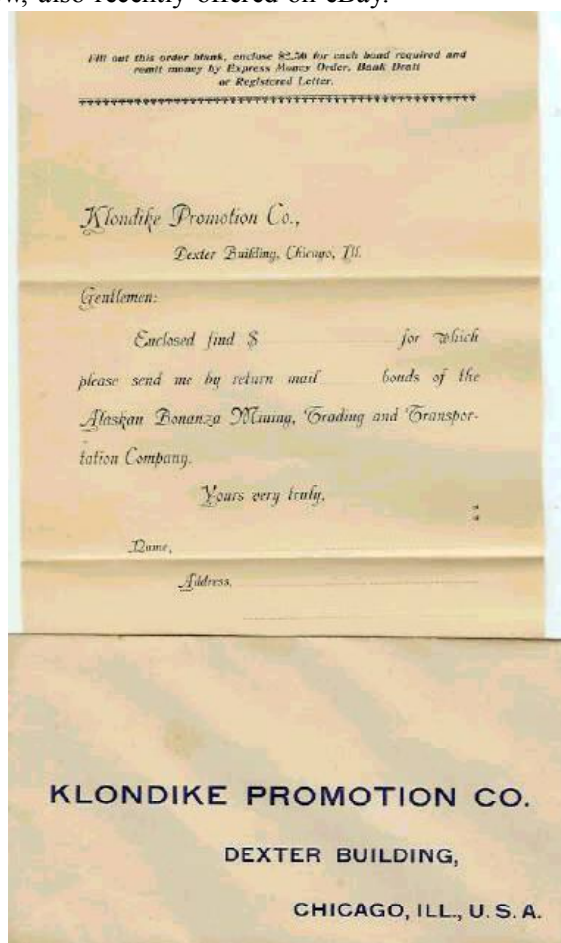 also recently offered on eBay.
Fill out this order blank, enclose $2.50 for each bond required and
remit money by Express Money Order, Bank Draft
or Registered Letter.
Klondike Promotion Co.,
Dexter Building, Chicago, Ill.
Gentlemen:
Enclosed find $ for which
please send me by return mail bonds of the
Alaskan Bonanza Mining, Trading and Transpor-
tation Company.
Yours very truly,
Name,
Address,
KLONDIKE PROMOTION CO.
DEXTER BUILDING,
CHICAGO, ILL., U. S. A.